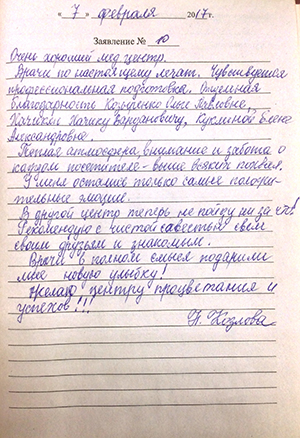 « 7 » февраля 2017 г.
Заявление № 10
Очень хороший мед. центр.
Врачи по настоящему лечат. Чувствуется
профессиональная подготовка. Отдельная
благодарность Павловне,
Хачику Вардановичу, Куклиной Елене
Александровне.
Теплая атмосфера, внимание и забота о
каждом посетителе - выше всяких похвал.
У меня остались только самые положи-
тельные эмоции.
В другой центр теперь не пойду ни за что!
Рекомендую с чистой совестью всем
своим друзьям и знакомым.
Врачи в полном смысле подарили
мне новую улыбку!
Желаю центру процветания и
успехов!!!
Н. Козлова.